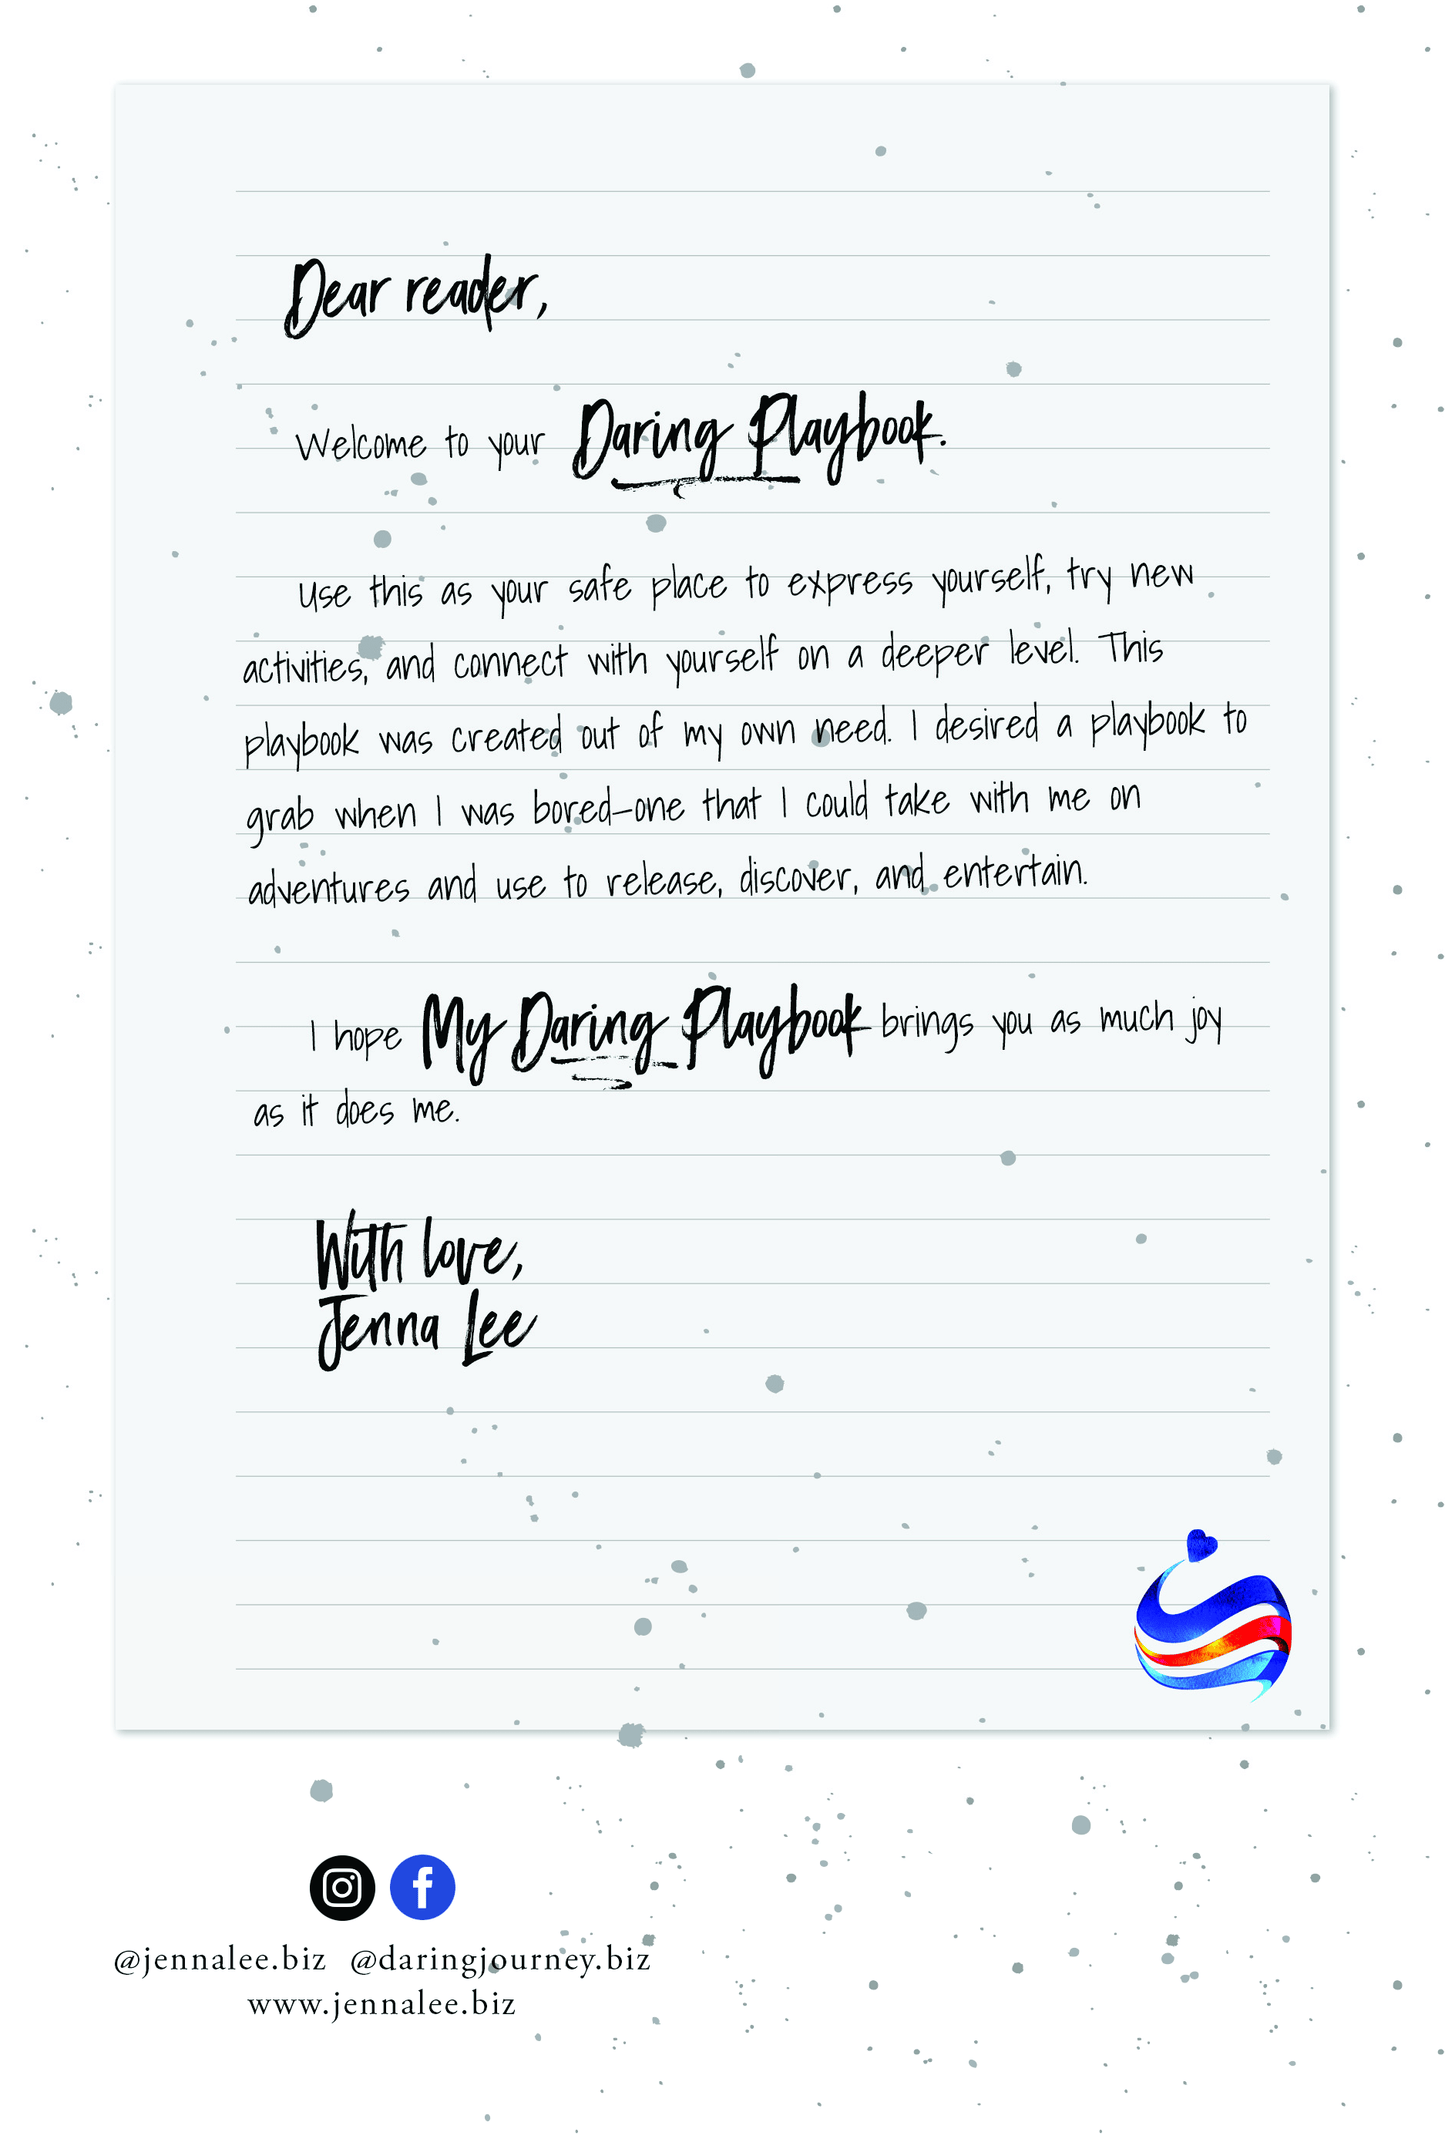 Dear reader,
Welcome to your Daring Playbook.
Use this as your safe place to express yourself, try new
activities, and connect with yourself on a deeper level. This
playbook was created out of my own need. I desired a playbook to
grab when I was bored—one that I could take with me on
adventures and use to release, discover, and entertain.
I hope My Daring Playbook brings you as much joy
as it does me.
With love,
Jenna Lee
@jennalee.biz @daringjourney.biz
www.jennalee.biz